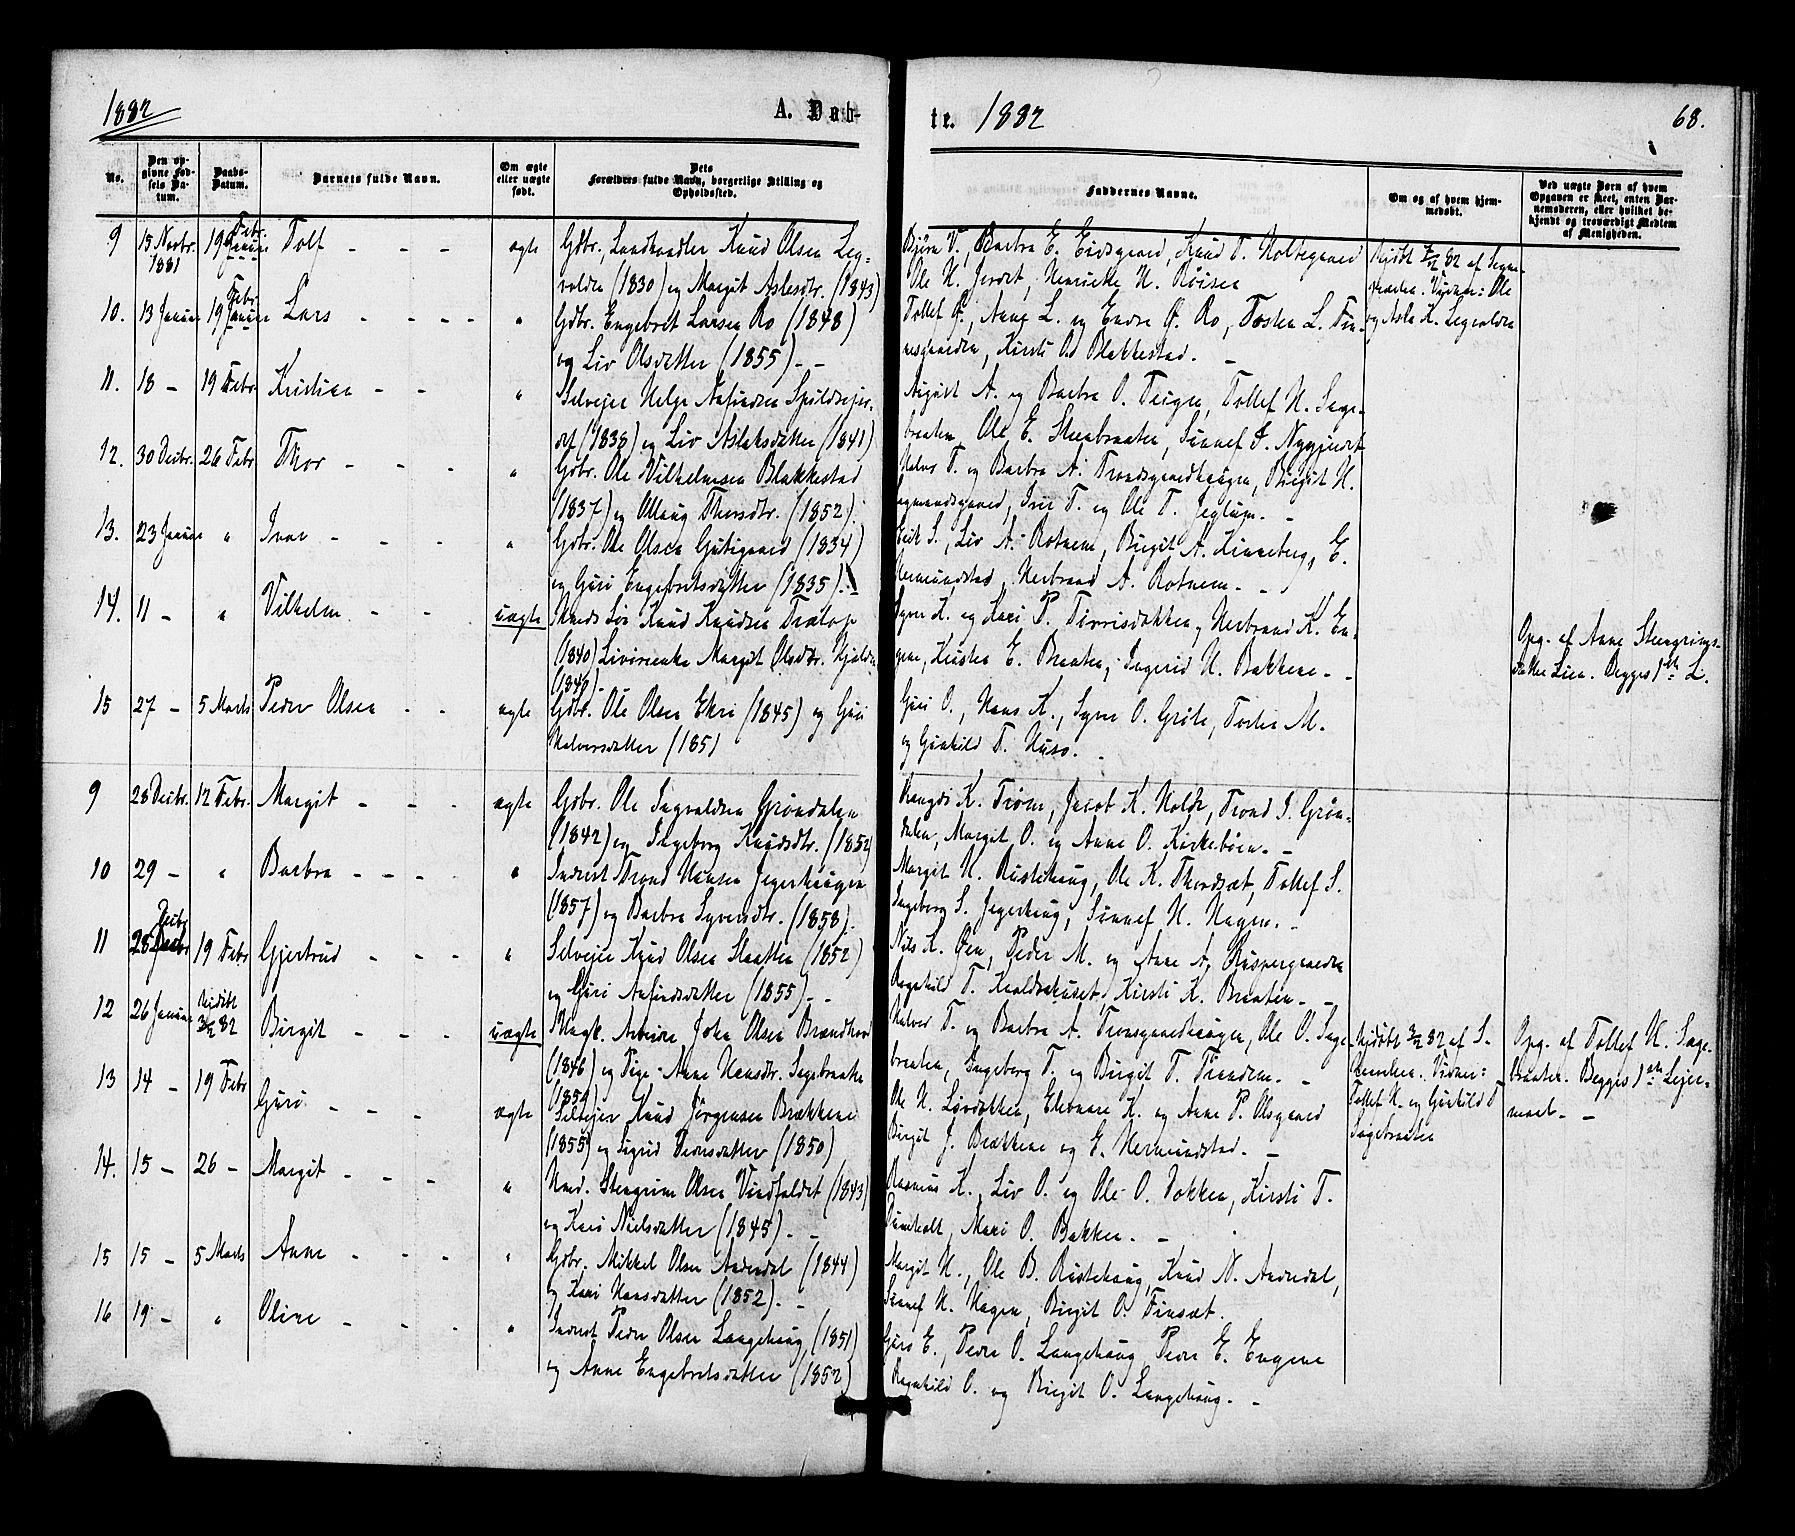 1882
A. Dåb-
te. 1882
68.
No.
Den op-
givne Fød-
sels Da-
tum.
Daabs-
Datum.
Barnets fulde Navn.
Om ægte
eller uægte
født.
Dets
Forældres fulde Navn, borgerlige Stilling og
Opholdssted.
Faddernes Navne.
Om og af hvem hjem-
medøbt.
Ved uægte Børn af hvem
Opgaven er skeet, enten Bar-
nemoderen, eller hvilket be-
kjendt og troværdigt Medlem
af Menigheden.
9 15 Novbr. 1881 19 Febr. Tolf - - - ægte Gdbr. Landhandler Knud Olsen Leg-
valden (1830) og Margit Aslesdtr. (1843)
Bjørn V., Barbra E. Eidsgaard, Knud T. Holtegaard
Ole H. Jerdet, Henrikke H. Røisen
Hjdbt 82 af Signe-
Vidner: Ole
og Asle K. Legvalden
10. 13 Januar 19 Febr Lars - - - - " Gdbr. Engebret Larsen Ro (1848)
og Liv Olsdatter (1855) - -
Tollef Ø., Anne L. og Endre Ø. Ro, Tosten L. Fin-
nesgaarden, Kirsti O. Blakkestad. -
11. 18 - 19 Febr Kristian - - " Selveier Helge Anfindsen Spildreier-
det (1838) og Liv Aslaksdatter (1841)
A. og Barbra O. Teigen, Tollef H. Sage-
braaten, Ole E. Steenbraaten, Sunnef I. Nygjerdet
12. 30 Decbr. 26 Febr Thor - - - " Gdbr. Ole Vilhelmsen Blakkestad
(1837) og Ollaug Thorsdtr. (1852)
Halvor T. og Barbra A. Trondsgaardhaugen, Birgit H.
Iver T. og Ole T. Jeglum. -
13. 23 Januar " Ivar - - - " Gdbr. Ole Olsen Gutigaard (1834)
og Guri Engebretsdatter (1835).
Erik S., Liv A. Rotnem, Birgit A. Kinneberg, E.
Hermundstad, Herbrand A. Rotnem. - -
14. 11 - " Vilhelm - - uægte Knud Knudsen Trælop
(1840) Margit Olsdtr. Hjelde
(1848) -
Syver K. og Kari P. Tørrisdokken, Herbrand K. En-
gene, Kirsten E. Braaten, Ingerid H. Bakkene. - -
Opg. af Anne Steengrims-
datter Lien. Begges 1ste L.
15 27 - 5 Marts Peder Olsen - - ægte Gdbr. Ole Olsen Ekre (1845) og Guri
Halvorsdatter (1851
Guri O., Hans K., Syver O. Grøte, Tosten M.
og Gunhild T. Huso. -
9 28 Decbr. 12 Febr. Margit - - - ægte Gdbr. Ole Ingvaldsen Grøndalen
(1842) og Ingeborg Knudsdtr. (1852)
K. Trøim, Jacob K. Holde, Trond I. Grøn-
dalen, Margit O. og Anne O. Kirkebøen. -
10 29 - " Barbra - - - - " Inderst Trond Hansen Jegerhaugen
(1857) og Barbra Syversdtr. (1858).
Margit H. Rustehaug, Ole K. Thordsæt, Tollef S.
Ingeborg S. Jegerhaug, Sunnef H. Hagen. -
11 28 Decbr 19 Febr Gjertrud - - - " Selveier Knud Olsen Slaatten (1852)
og Guri Anfindsdatter (1855). -
Nils K. Øen, Peder M. og Anne A. Ruspergaarden
Ragnhild T. Kirsti K. Braaten. - -
12 26 Januar Hjdøbt 82 Birgit - - - uægte Ungk. Arbeider John Olsen Brandhord
(1846) og Pige Anne Hansdtr. Sagebraaten
(1859)
Halvor T. og Barbra A. Tronsgaardhaugen, Ole O. Sage-
braaten, Ingeborg T. og Birgit T. Trondem. -
Hjdøbt 82 af S.
Vidner:
Tollef H. og Gunhild T
Sagebraaten
Opg. af Tollef H. Sage-
braaten. Begges 1ste Leier-
maal. -
13 14 - 19 Febr Guri - - - ægte Selveier Knud Jørgensen Brækkene
(1855) og Sigrid Pedersdatter (1850)
Ole H. Løvdokken, Eleonore K. og Anne P. Olsgaard
Birgit J. Brækkene og E. Hermundstad. -
14. 15 - 26 - Margit - - - " Steengrim Olsen Vindfaldet (1843)
og Kari Nielsdatter (1845). -
Rasmus K., Liv O. og Ole O. Dokken, Kirsti T.
Mari O. Bakken. -
15 15 - 5 Marts Anne - - - " Gdbr. Mikkel Olsen Anderdal (1844)
og Kari Hansdatter (1852). -
Margit H., Ole B. Rustehaug, Knud N. Anderdal,
Sunnef H. Hagen, Birgit O. Finsæt.
16 19 - " Oline - - - " Inderst Peder Olsen Langehaug (1851)
og Anne Engebretsdatter (1852)
Guri E., Peder O. Langehaug, Peder E. Engene
Ragnhild O. og Birgit O. Langehaug. - -